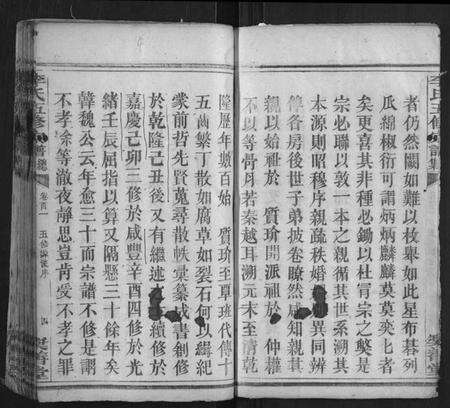 者仍然闕如難以枚舉如此星布碁列
瓜綿椒衍可謂炳炳麟麟莫莫夾七者
矣更喜其非種必鋤以杜冒宗之獘是
宗必聯以敦一本之親循其世系溯其
本源則昭穆序親疏秩婚異同辨
俾各房後世子弟披卷瞭然咸知親其
親以始祖於 質玠開派祖於 仲權
不以等骨月若秦越耳溯元末至清乾
隆歷年數百始 質玠至單班代傳十
五齒繁丁散如腐草如裂石何緝紀
蒙前哲先賢蒐尋散帙彙纂成書創修
於乾隆己丑後又有繼述續修於
嘉慶己卯三修於咸豐辛酉四修於光
緒壬辰屈指以算又隔懸三十餘年矣
韓魏公云年愈三十而宗譜不修是謂
不孝余等澈夜靜思豈肯受不孝之罪
李氏五修譜
卷首一
五修譜序
四